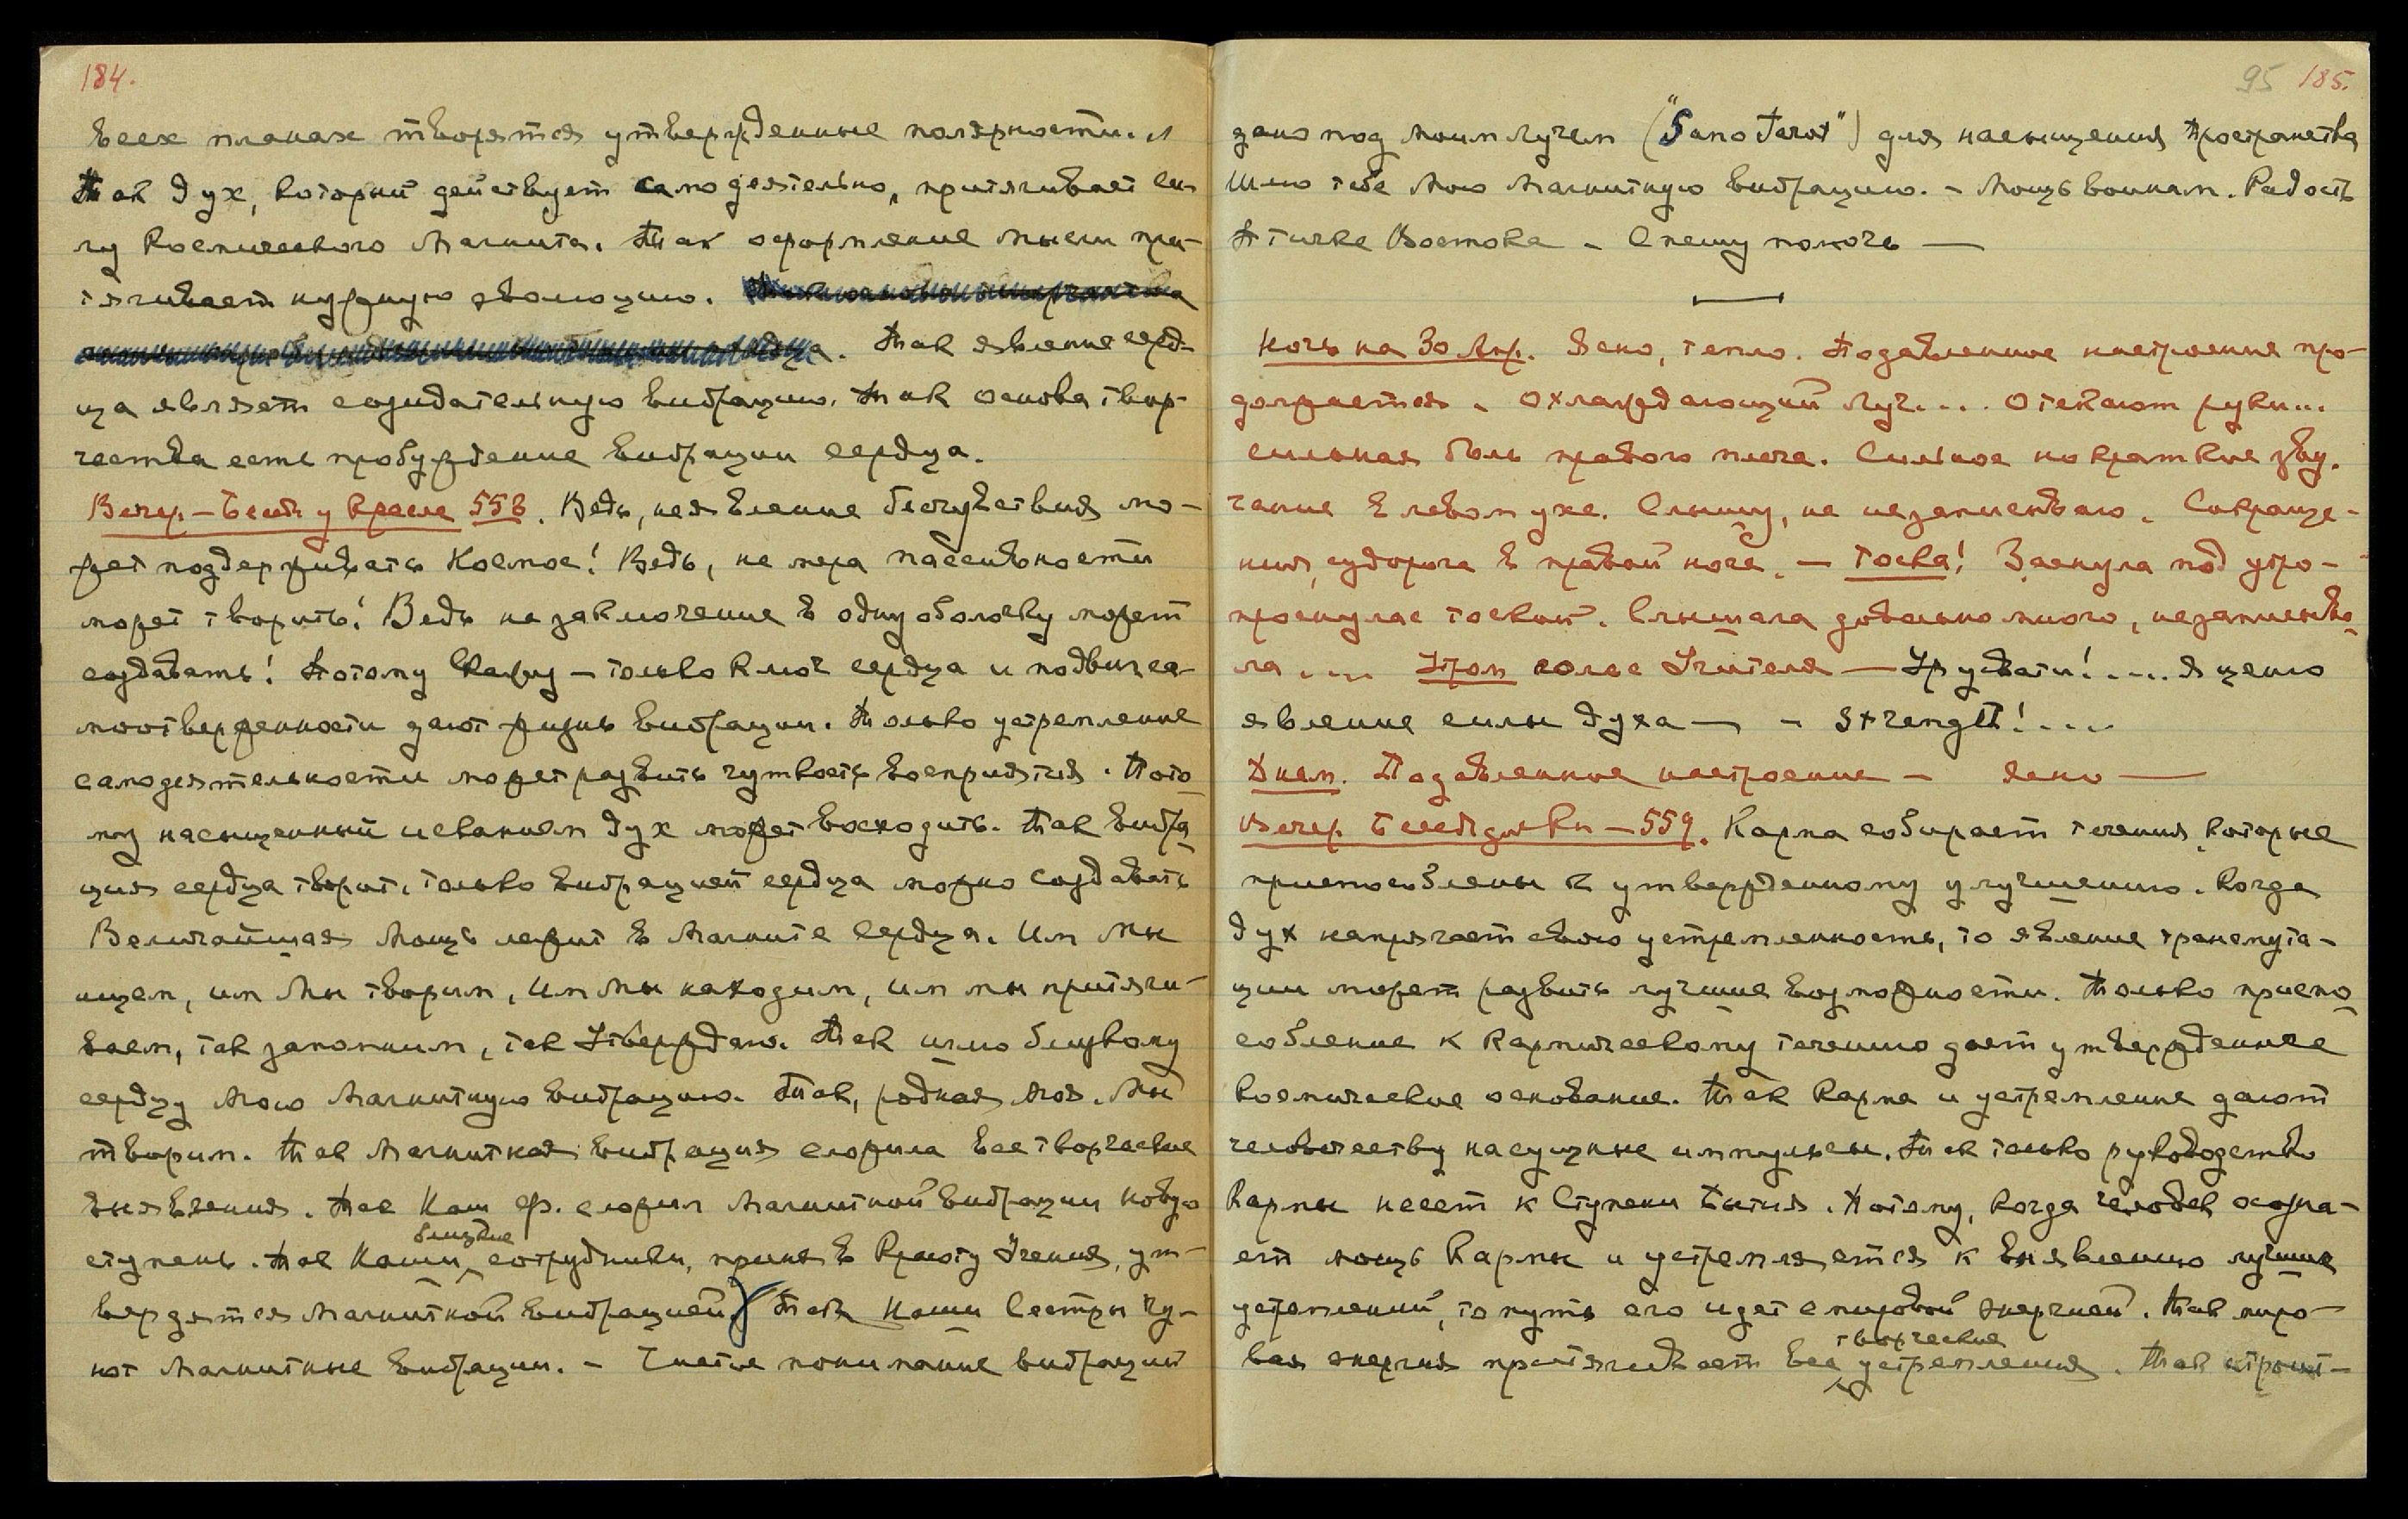 184.
всех планах творятся утвержденные полярности. И
Так дух, который действует самодеятельно, притягивает си-
лу Космического Магнита. Так оформление мысли при-
тягивает нужную эволюцию.
Так явление серд-
ца являет созидательную вибрацию. Так основа твор-
чества есть пробуждение вибрации сердца.
Вечер — 558. Ведь, не явление бесчувствия мо-
жет поддерживать Космос! Ведь, не мера пассивности
может творить! Ведь не заключение в одну оболочку может
создавать! Потому Скажу — только ключ сердца и подвиг са-
моотверженности дают жизнь вибрации. Только устремление
самодеятельности может развить чуткость восприятия. Пото
му насыщенный исканием дух может восходить. Так вибра
ция сердца творит. Только вибрацией сердца можно создавать
Величайшая Мощь лежит в Магните Сердца. Им Мы
ищем, им Мы творим, Им Мы находим, им мы притяги-
ваем, так запомним, так Утверждаю. Так шлю близкому
сердцу Мою Магнитную вибрацию. Так, родная Моя. Мы
творим. Так Магнитная вибрация сложила все творческие
выявления. Так Наш Ф. сложил Магнитной вибрации новую
ступень. Так Наши близкие сотрудники, приняв Красоту Учения, ут-
вердятся Магнитной вибрацией. Так Наши Сестры чу-
ют Магнитные вибрации. — Чистое понимание вибраций
95 185.
дано под Моим Лучем для насыщения Пространства
Шлю тебе Мою Магнитную вибрацию. — Мощь воинам. Радость
Птичке Востока — Спешу помочь —
Ночь на 30 Апр. Ясно, тепло. Подавленное настроение про-
должается. Охлаждающий Луч.... Отекают руки...
сильная боль правого плеча. Сильное но краткое зву-
чание в левом ухе. Слышу, но не записываю. Сокраще-
ния, судорога в правой ноге. — Тоска! Заснула под утро-
проснулас тоской. Слышала довольно много, не записыва
ла .... Утром голос Учителя — .... Я ценю
явление силы духа — — Strength!....
Днем. Подавленное настроение — Ясно —
Вечер — 559. Карма собирает течения, которые
приспособлены к утвержденному улучшению. Когда
дух напрягает свою устремленность, то явление трансмута-
ции может развить лучшие возможности. Только приспо
собление к Кармическому течению дает утвержденное
Космическое основание. Так Карма и устремление дают
человечеству насущные импульсы. Так только руководство
Кармы несет к Ступени Бытия. Потому, когда человек осозна-
ет мощь Кармы и устремляется к выявлению лучших
устремлений, то путь его идет с мировой энергией. Так миро-
вая энергия притягивает все творческие устремления. Так строит-